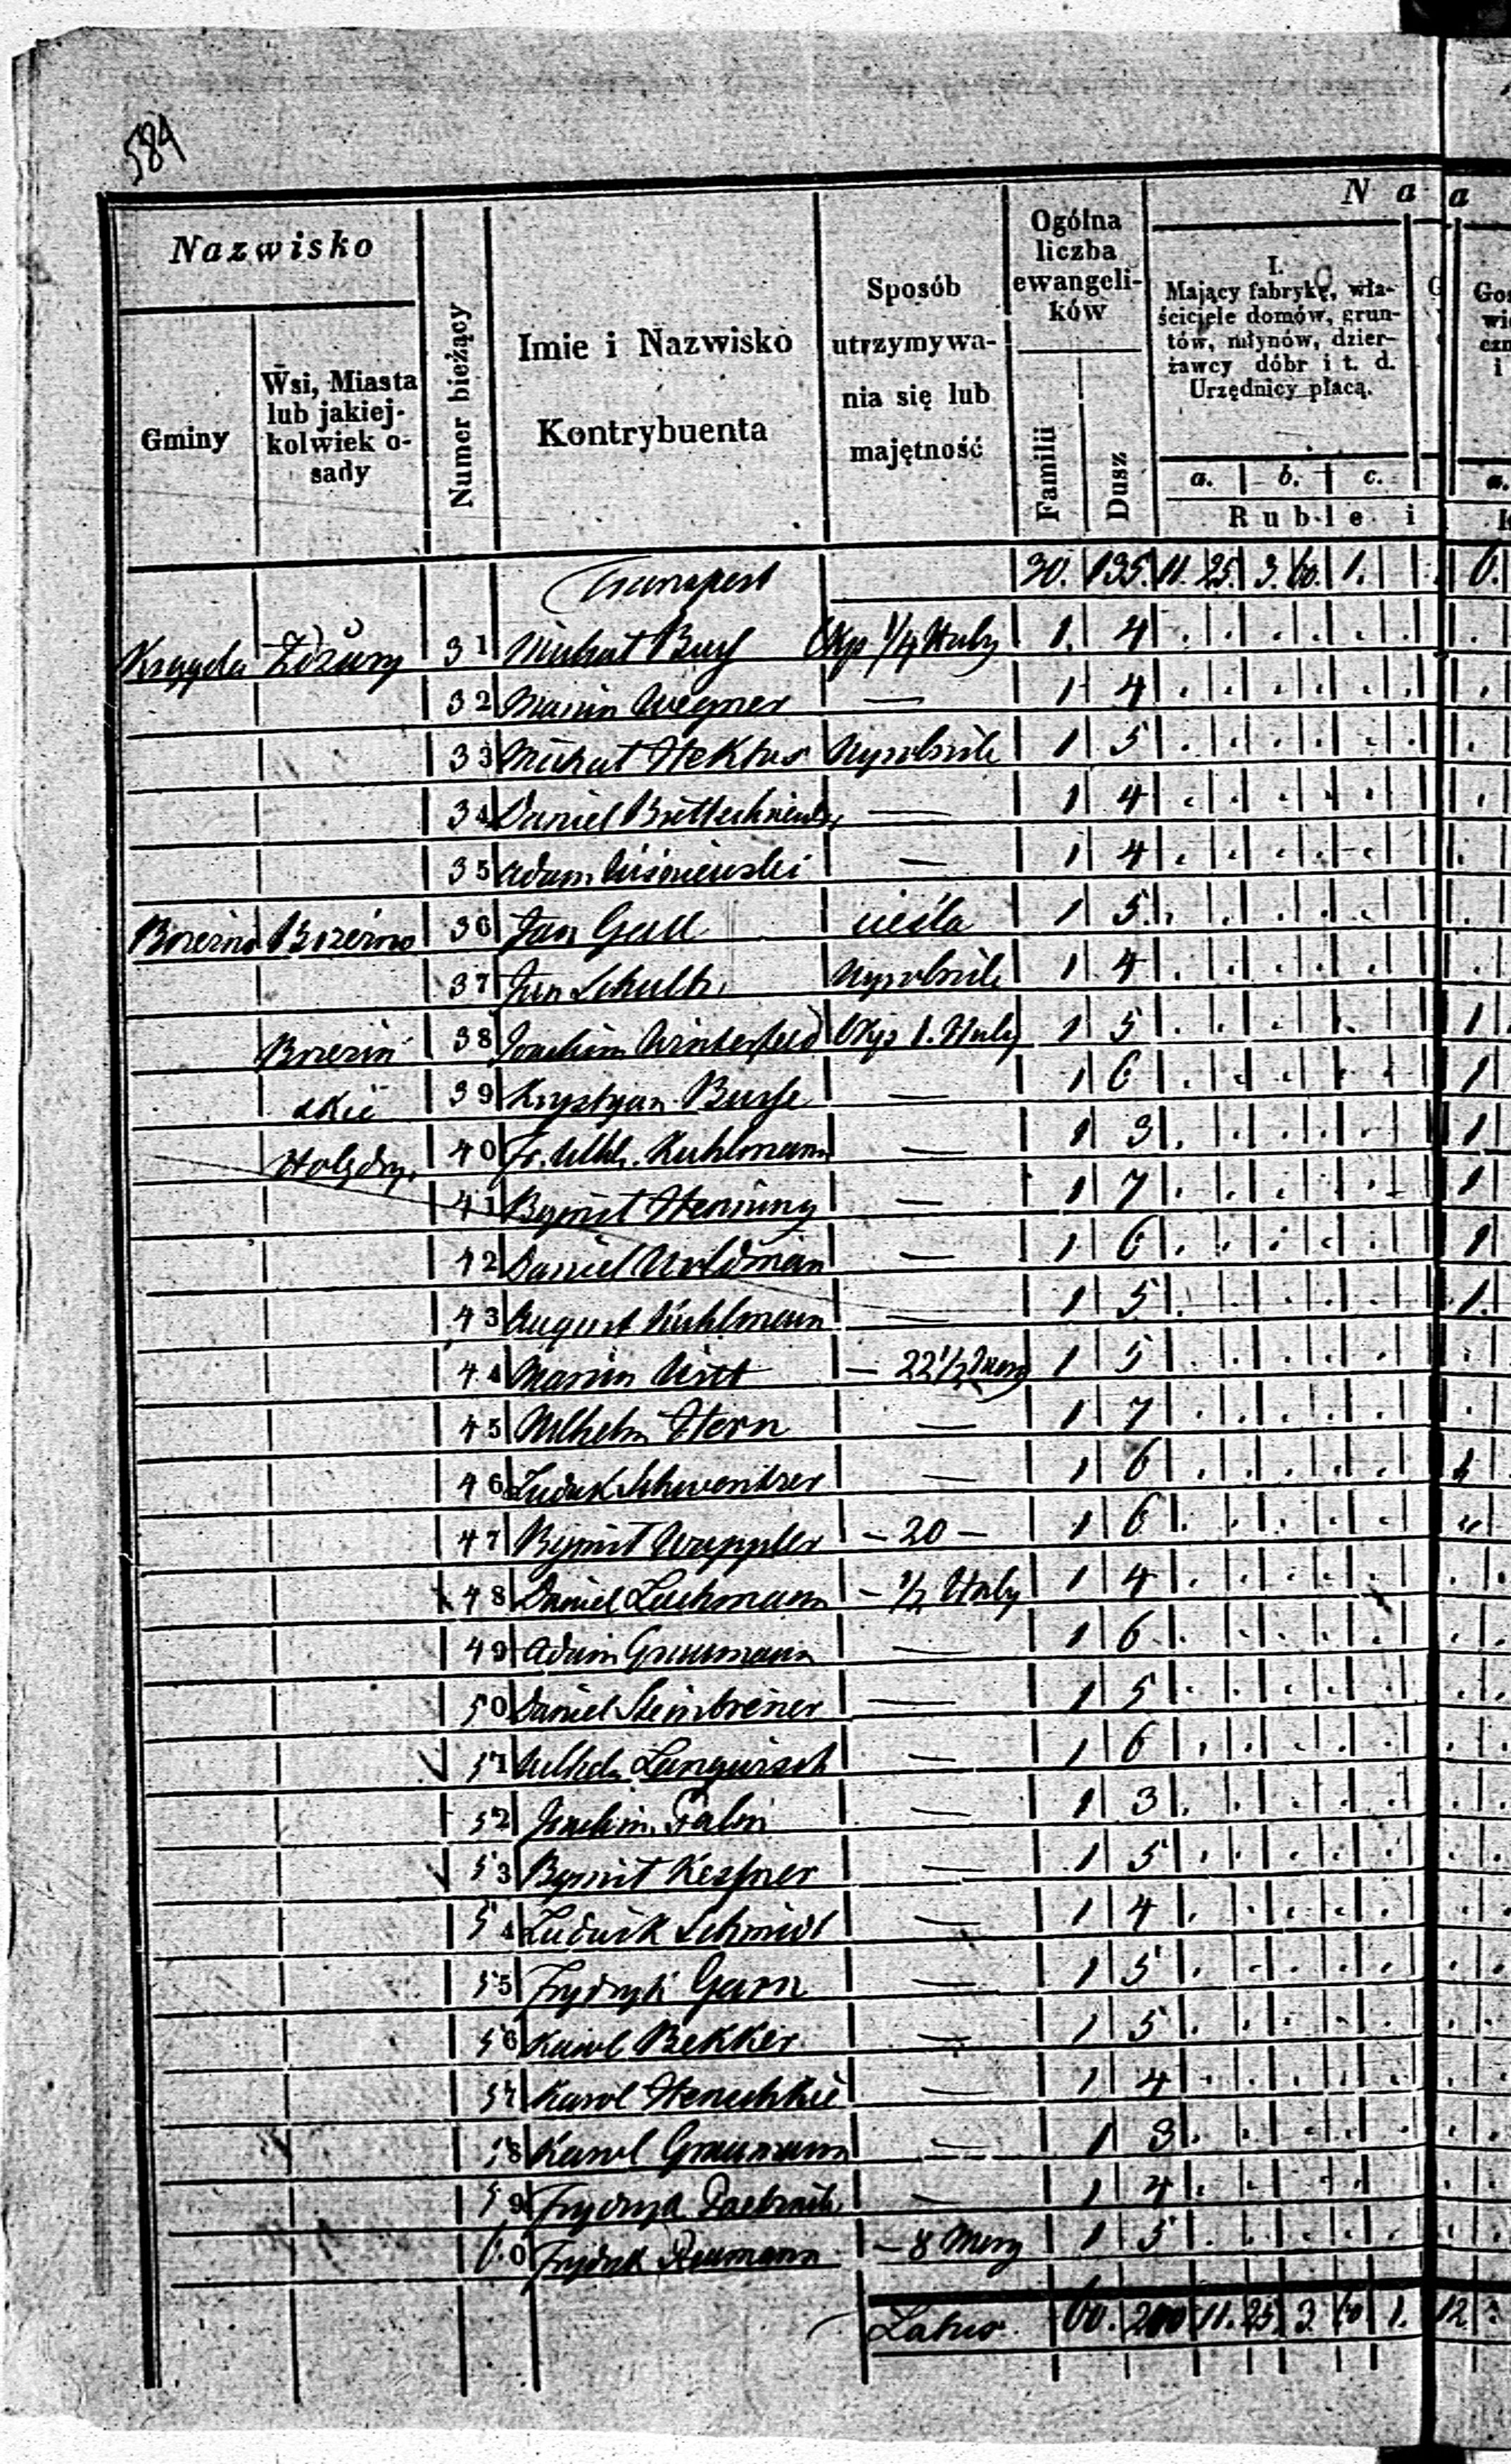 584
N a a
Nazwisko
Gminy
Wsi, Miasta lub jakiej- kolwiek o- sady
Numer bieżący
Imie i Nazwisko Kontrybuenta
Sposób utrzymywa- nia się lub majętność
Ogólna liczba ewangeli- ków
Familii
Dusz
I. Mający fabrykę, wła- ściciele domów, grun- tów, młynów, dzier- żawcy dóbr i t. d. Urzędnicy płacą.
a. b. c.
a.
R u b l e i
Transport 30. 135. 11. 25. 3. 60. 1. 6.
31 Michał 1/4 Huby 1. 4
32 Marcin Wegner — 1 4
33 Michał Hektus Wyrobnik 1 5
34 Daniel — 1 4
35 Adam Wiśniewski — 1 4
Brzezno Brzezno 36 Jan Gall cieśla 1 5
37 Jan Schultz Wyrobnik 1 4
Brzeziń 38 Joachim Winterfeld 1. Huby 1 5 1
skie 39 Krystyan Busse — 1 6 1
Holędry. 40 Fr. Wilh. Kuhlmann — 1 3 1
41 Bogumił Henning — 1 7 1
42 Daniel Woldman — 1 6 1
43 August Kuhlmann — 1 5 1.
44 Marcin Witt — 22 1/2 1 5
45 Wilhelm Stern — 1 7
46 Ludwik — 1 6
47 Bogumił Wappler — 20 — 1 6
48 Daniel Luckmann — 1/2 Huby 1 4
49 Adam Graumann — 1 6
50 Daniel Steinbrener — 1 5
51 Wilhelm — 1 6
52 Joachim — 1 3
53 Bogumił Kessner — 1 5
54 Ludwik Schmidt — 1 4
55 Frydryk Garn — 1 5
56 Karol Bekker — 1 5
57 Karol — 1 4
58 Karol Graumann — 1 3
59 Frydryk — 1 4
60 Frydryk — 8 Morg 1 5
Latus. 60. 11. 25. 3. 60 1. 12